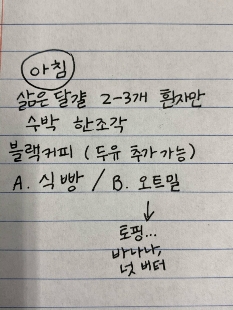 아침
삶은 달걀 2-3개 흰자만
수박 한조각
블랙커피 (두유 추가 가능)
A. 식빵 / B. 오트밀
↓
토핑...
바나나,
넛 버터